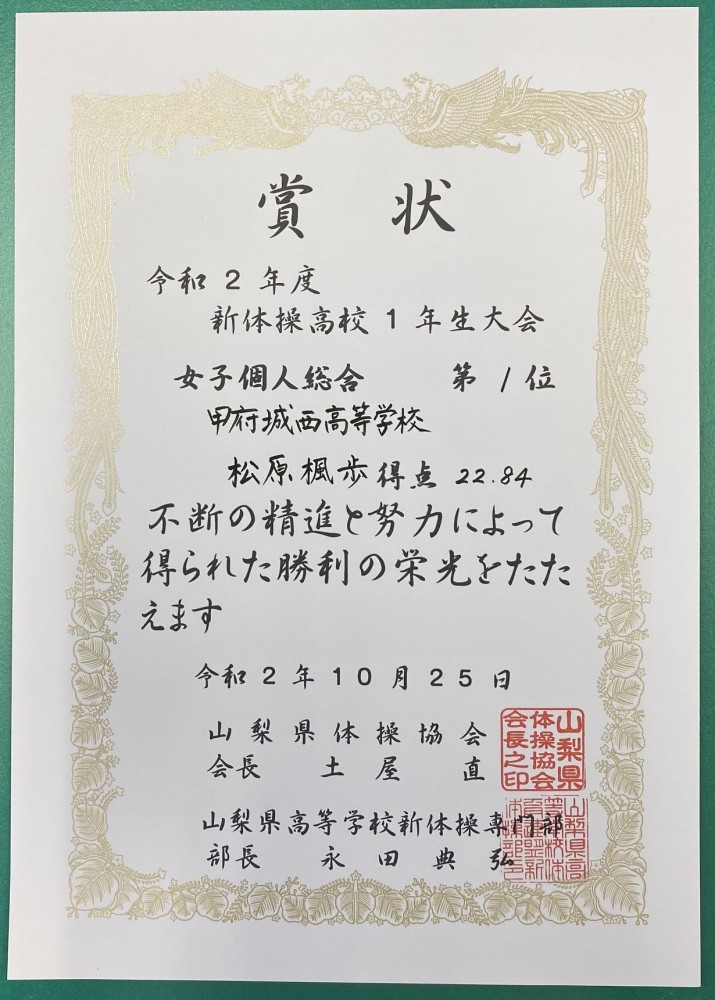 賞 状
令和2年度
新体操高校1年生大会
女子個人総合 第1位
甲府城西高等学校
松原楓歩 得点 22.84
不断の精進と努力によって
得られた勝利の栄光をたた
えます
令和2年10月25日
山梨県体操協会
会長 土屋 直
山梨県
体操協会
会長之印
山梨県高等学校新体操専門部
部長 永田典弘